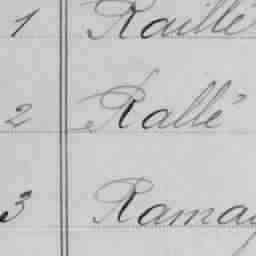 1 Raillé
2 Rallé
3 Ramay